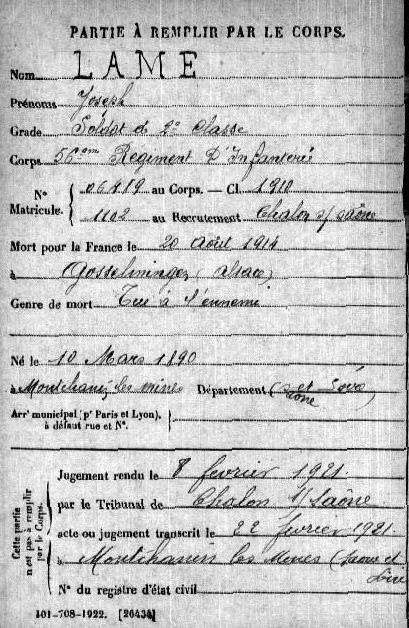 PARTIE À REMPLIR PAR LE CORPS.
Nom LAME
Prénoms Joseph
Grade Soldat d 2e Classe
Corps 56em Régiment D'Infanterie
N° Matricule. 06119 au Corps. — Cl 1910
1102 au Recrutement Chalon s/ Saône
Mort pour la France le 20 Août 1914
à Gosselminger (Alsace)
Genre de mort Tué à l'ennemi
Né le 10 Mars 1890
à Montchanin les mines Département (Saône et Loire
Arrt municipal (pr Paris et Lyon),
à défaut rue et N°.
Cette partie n'est pas à remplir par le Corps.
Jugement rendu le 8 février 1921
par le Tribunal de Chalon s/ Saône
acte ou jugement transcrit le 22 février 1921
à Montchanin les Mines (Saone et Loire
N° du registre d'état civil
101-708-1922. [26434]